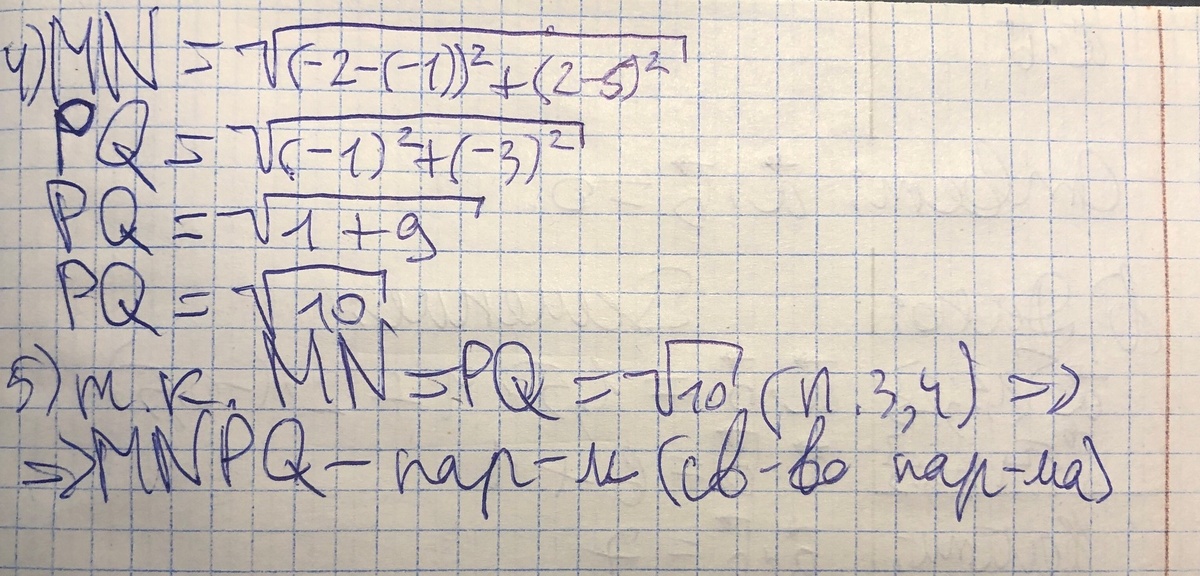 4) MN = √((-2-(-1))² + (2-5)²
PQ = √((-1)² + (-3)²
PQ = √(1 + 9)
PQ = √10
5) т.к. MN = PQ = √10 (п. 3, 4) =>
=> MNPQ – пар-м (св-во пар-ма)